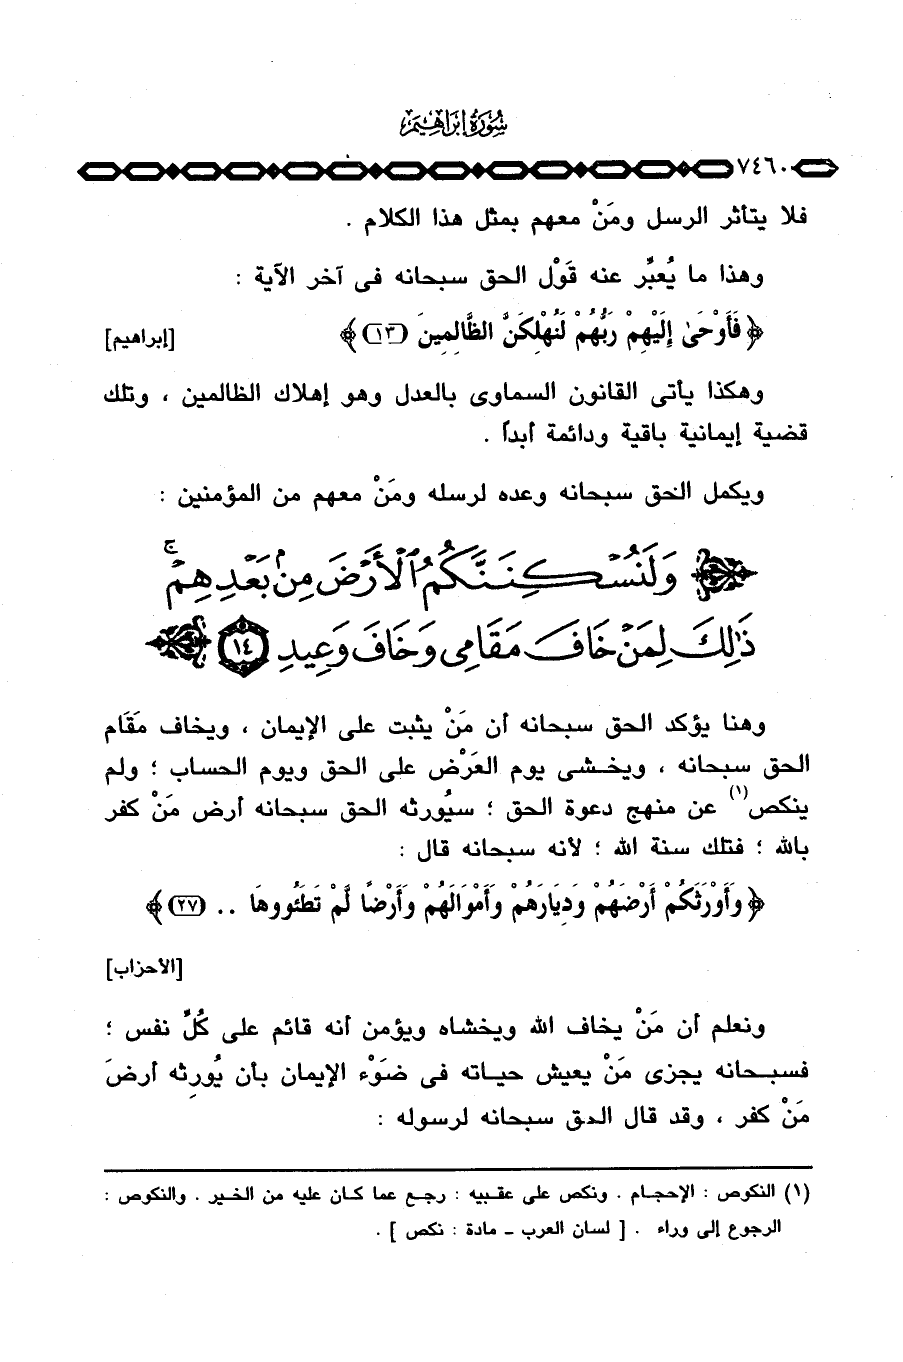 سُورَةُ إِبْرَاهِيمَ
٧٤٦٠
فلا يتأثر الرسل ومَنْ معهم بمثل هذا الكلام .
وهذا ما يُعبِّر عنه قَوْل الحق سبحانه فى آخر الآية :
﴿ فَأَوْحَىٰ إِلَيْهِمْ رَبُّهُمْ لَنُهْلِكَنَّ الظَّالِمِينَ (١٣) ﴾ [إبراهيم]
وهكذا يأتى القانون السماوى بالعدل وهو إهلاك الظالمين ، وتلك
قضية إيمانية باقية ودائمة أبداً .
ويكمل الحق سبحانه وعده لرسله ومَنْ معهم من المؤمنين :
وَلَنُسْكِنَنَّكُمُ ٱلْأَرْضَ مِنۢ بَعْدِهِمْ ۚ
ذَٰلِكَ لِمَنْ خَافَ مَقَامِى وَخَافَ وَعِيدِ ١٤
وهنا يؤكد الحق سبحانه أن مَنْ يثبت على الإيمان ، ويخاف مَقَام
الحق سبحانه ، ويخشى يوم العَرْض على الحق ويوم الحساب ؛ ولم
ينكص(١) عن منهج دعوة الحق ؛ سيُورثه الحق سبحانه أرض مَنْ كفر
بالله ؛ فتلك سنة الله ؛ لأنه سبحانه قال :
﴿ وَأَوْرَثَكُمْ أَرْضَهُمْ وَدِيَارَهُمْ وَأَمْوَالَهُمْ وَأَرْضًا لَّمْ تَطَئُووهَا .. (٢٧) ﴾
[الأحزاب]
ونعلم أن مَنْ يخاف الله ويخشاه ويؤمن أنه قائم على كُلِّ نفس ؛
فسبحانه يجزى مَنْ يعيش حياته فى ضَوْء الإيمان بأن يُورِثه أرضَ
مَنْ كفر ، وقد قال الحق سبحانه لرسوله :
(١) النكوص : الإحجام . ونكص على عقبيه : رجع عما كان عليه من الخير . والنكوص :
الرجوع إلى وراء . [ لسان العرب ـ مادة : نكص ] .